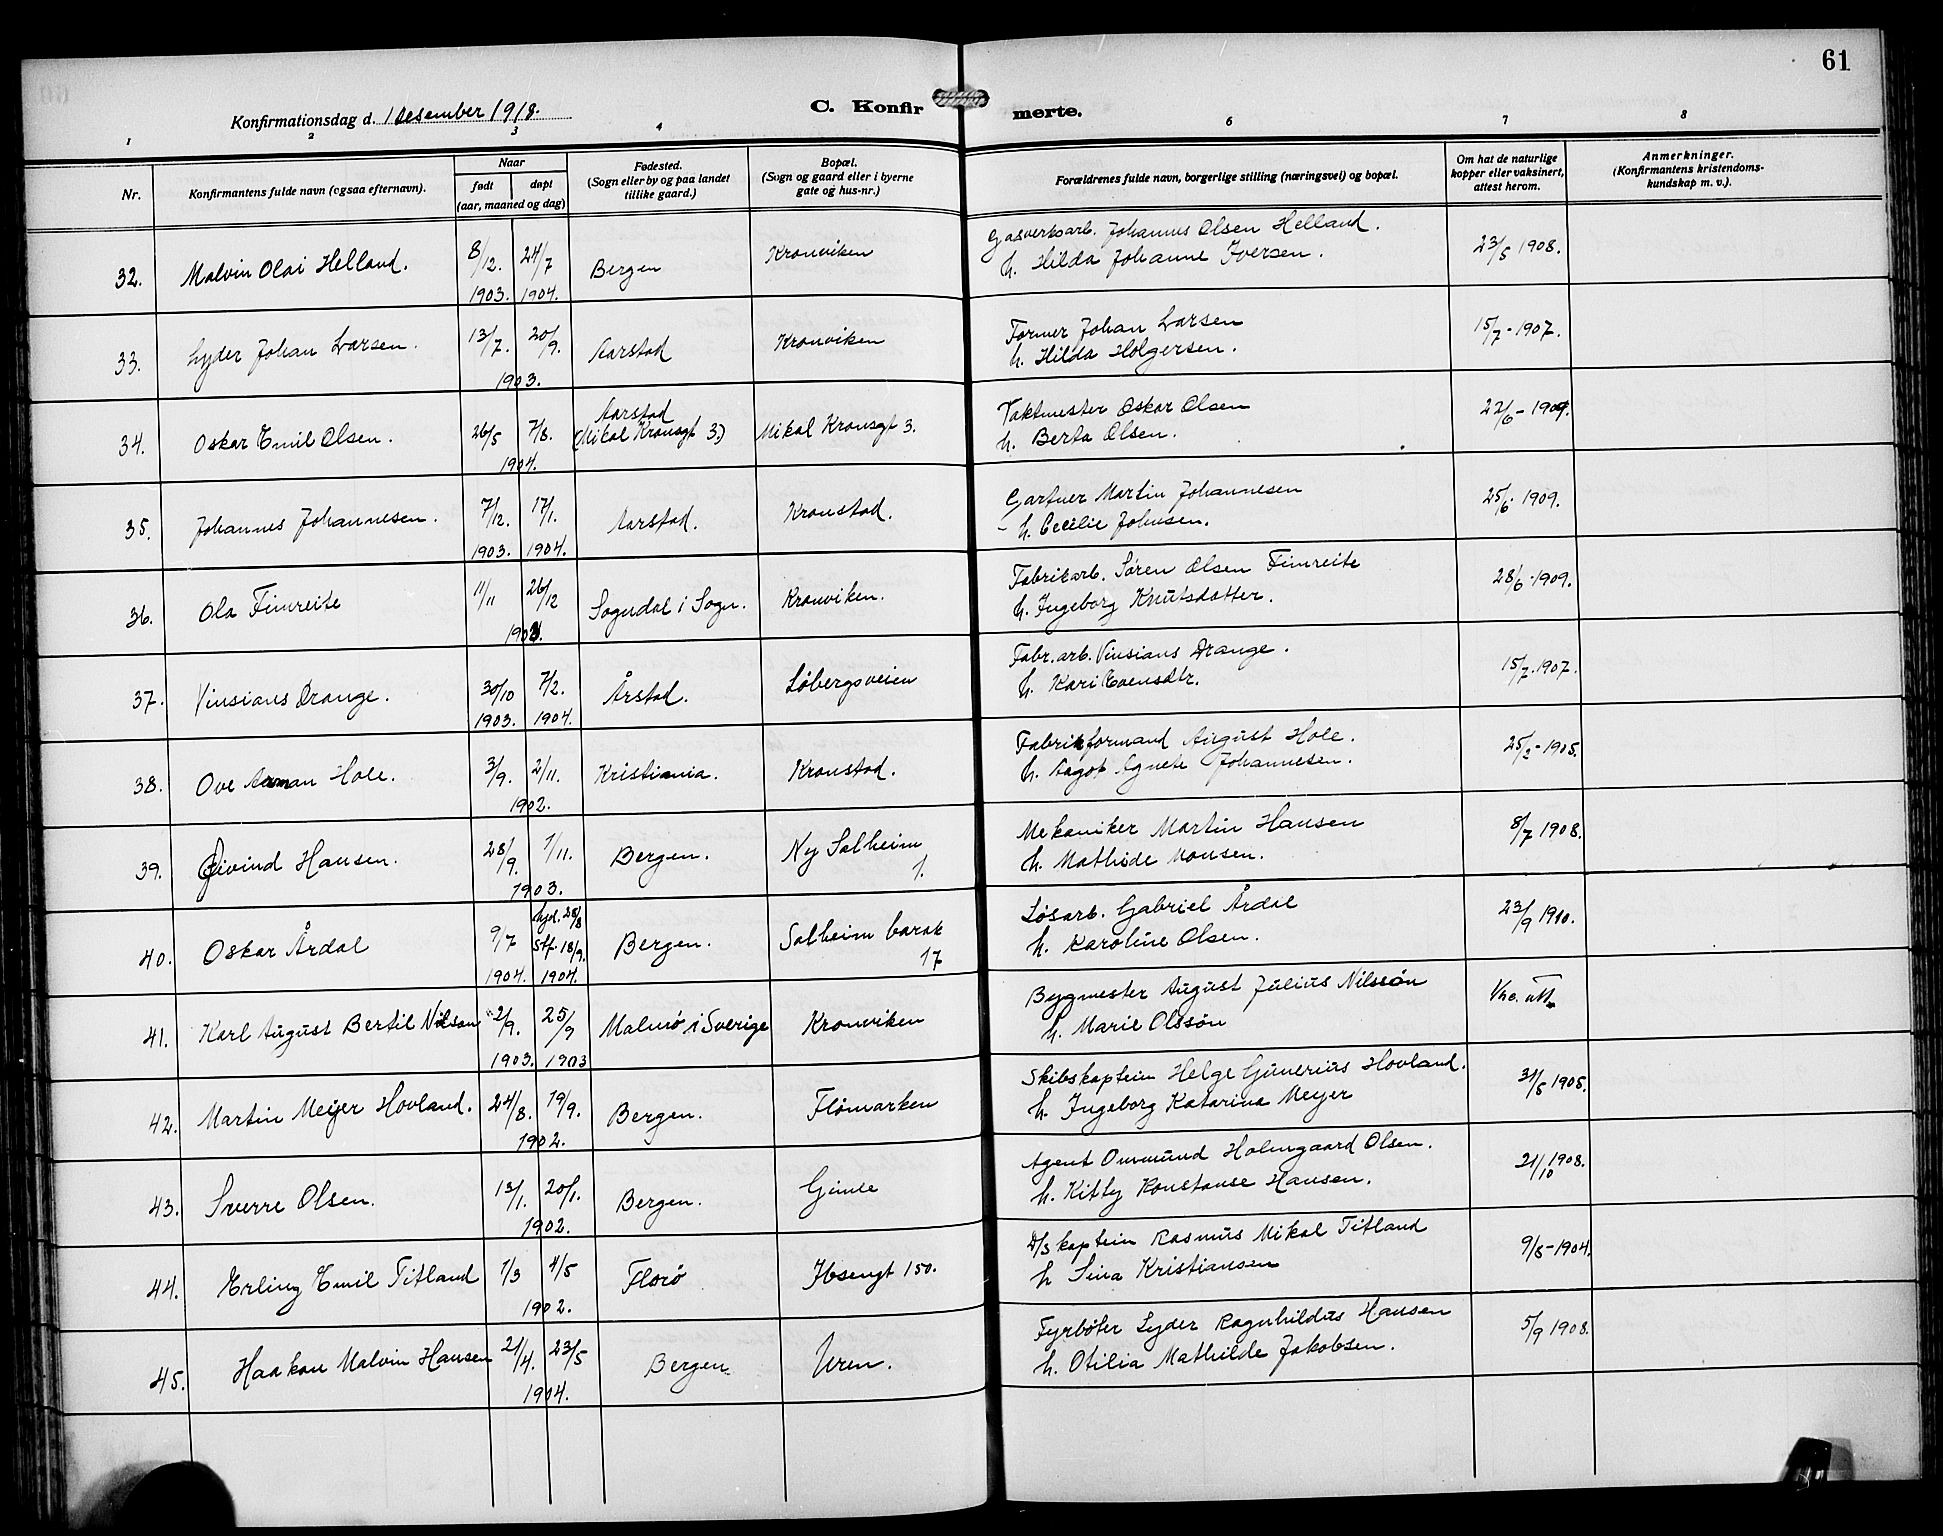 61
Konfirmationsdag d. 1 desember 1918.
C. Konfirmerte.
1 2 3 4 6 7 8
Nr.
Konfirmantens fulde navn (ogsaa efternavn).
Naar
født døpt
(aar, maaned og dag)
Fødested.
(Sogn eller by og paa landet
tillike gaard.)
Bopæl.
(Sogn og gaard eller i byerne
gate og hus-nr.)
Forældrenes fulde navn, borgerlige stilling (næringsvei) og bopæl.
Om hat de naturlige
kopper eller vaksinert,
attest herom.
Anmerkninger.
(Konfirmantens kristendoms-
kundskap m. v.).
32. Malvin Olai Helland. 8/12. 1903. 24/7 1904. Bergen Kronviken
Gasverksarb. Johannes Olsen Helland.
h. Hilda Johanne Iversen.
23/5 1908.
33. Lyder Johan Larsen. 13/7. 20/9. 1903. Aarstad Kronviken
Former Johan Larsen
h. Hilda Holgersen.
15/7 - 1907.
34. Oskar Emil Olsen. 26/5 7/8. 1904. Aarstad
(Mikal Kronsgt 3.) Mikal Kronsgt 3.
Vaktmester Oskar Olsen
h. Berta Olsen.
22/6 - 1909.
35. Johannes Johannesen. 7/12. 1903. 17/1. 1904. Aarstad. Kronstad.
Gartner Martin Johannesen
h. Cecilie Johnsen.
25/6 1909.
36. Ola Fimreite 11/11 26/12 Sogndal i Sogn. Kronviken.
Fabrikarb. Søren Olsen Fimreite
h. Ingeborg Knutsdatter.
28/6 - 1909.
37. Vinsians Drange. 30/10 1903. 7/2. 1904. Årstad. Løbergsveien
Fabr. arb. Vinsians Drange.
h. Kari Evensdtr.
15/7. 1907.
38. Ove Arman Hole. 3/9. 2/11. 1902. Kristiania. Kronstad.
Fabrikformand August Hole.
h. Aagot Agnete Johannesen.
25/2 - 1905.
39. Øivind Hansen. 28/9. 1/11. 1903. Bergen. Ny Solheim
1.
Mekaniker Martin Hansen
h. Mathilde Monsen.
8/7 1908.
40. Oskar Årdal 9/7 1904. hjd. 28/8
Stf. 18/9. 1904. Bergen. Solheim barak
17
Løsarb. Gabriel Årdal
h. Karoline Olsen.
23/9 1910.
41. Karl August Bertil Nilsson 2/9. 1903. 25/9 1903 Malmö i Sverige Kronviken
Bygmester August Julius Nilssön
h. Marie Olssön
42. Martin Meyer Hovland. 24/8. 19/9. 1902. Bergen. Flømarken
Skibskaptein Helge Gunerius Hovland.
h. Ingeborg Katarina Meyer
31/5 1905.
43. Sverre Olsen. 13/1. 20/1. 1902. Bergen. Gimle
Agent Ommund Holmgaard Olsen.
h. Kitty Konstanse Hansen.
21/10 1908.
44. Erling Emil Titland 1/3 4/5 1902. Florø Ibsengt 150.
D/S kaptein Rasmus Mikal Titland
h Sina Kristiansen
9/8 - 1904.
45. Haakon Malvin Hansen 21/4. 23/5 1904. Bergen Uren.
Fyrbøter Lyder Ragnhildus Hansen
h. Otilia Mathilde Jakobsen.
5/9 1908.